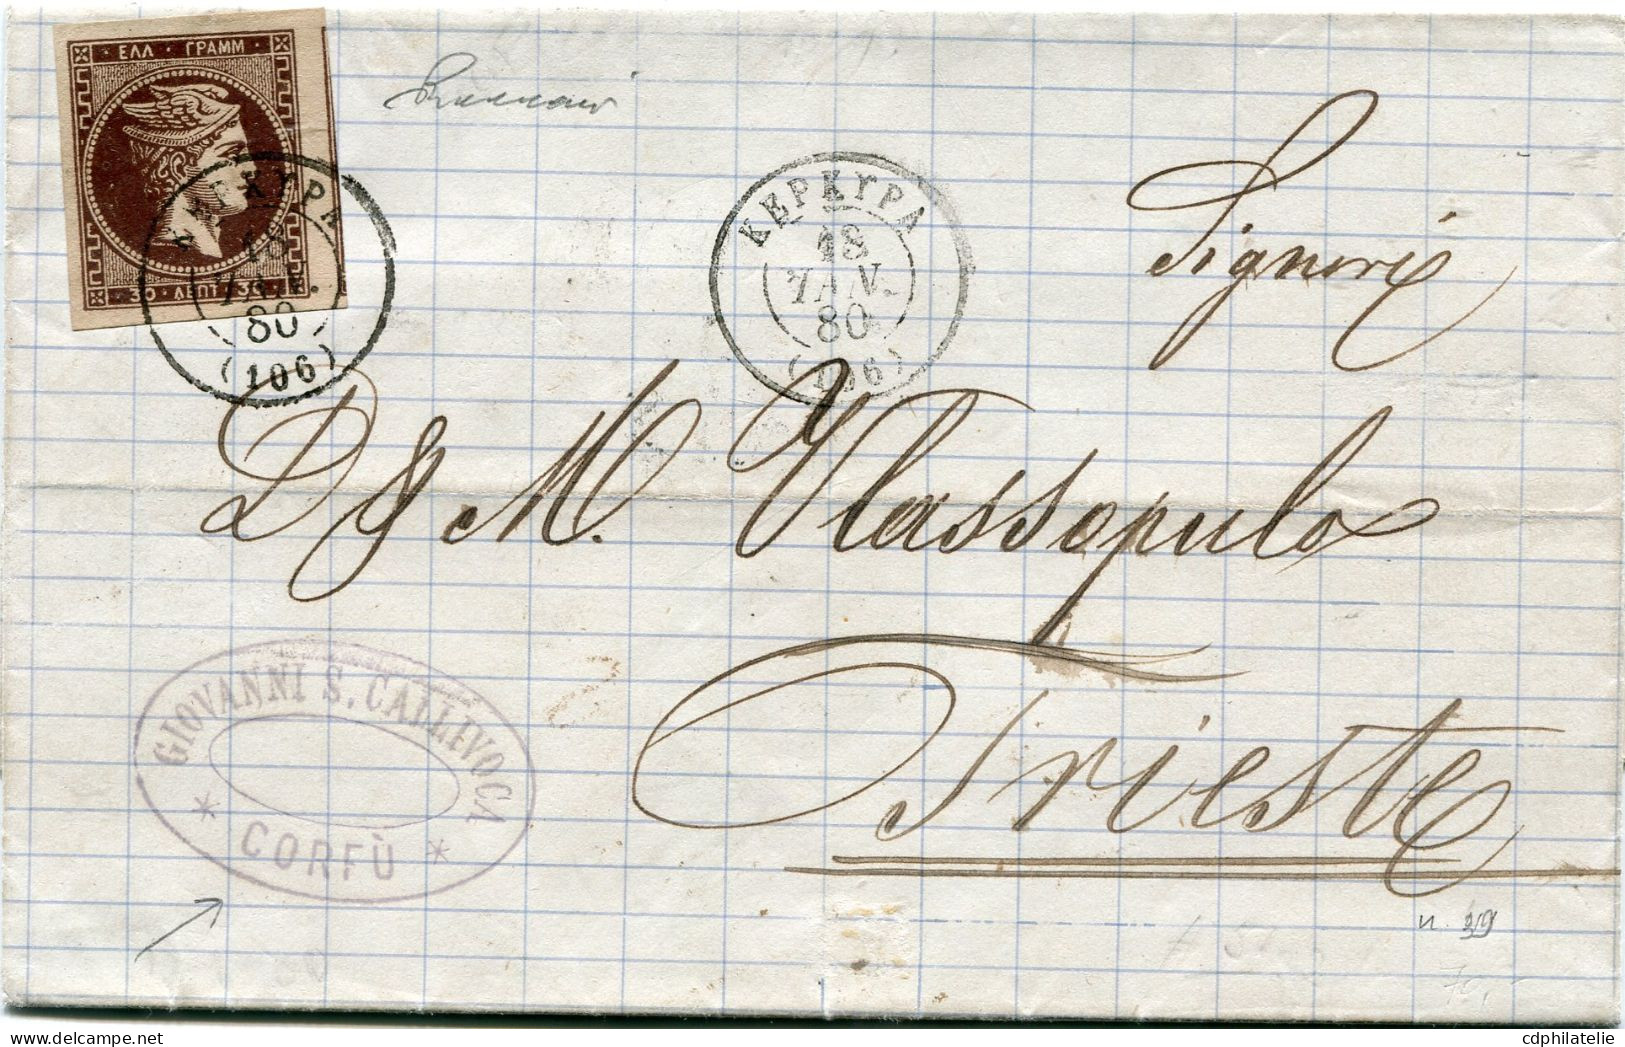 ΕΛΛ · ΓΡΑΜΜ
30 ΛΕΠΤ 30
ΚΕΡΚΥΡΑ
18
ΙΑΝ.
80
(106)
ΚΕΡΚΥΡΑ
18
ΙΑΝ.
80
(106)
Signori
D & M. Vlassopulo
Trieste
GIOVANNI S. CALLIVOCA
* CORFÙ *
n. 39
70,-
cdphilatelie